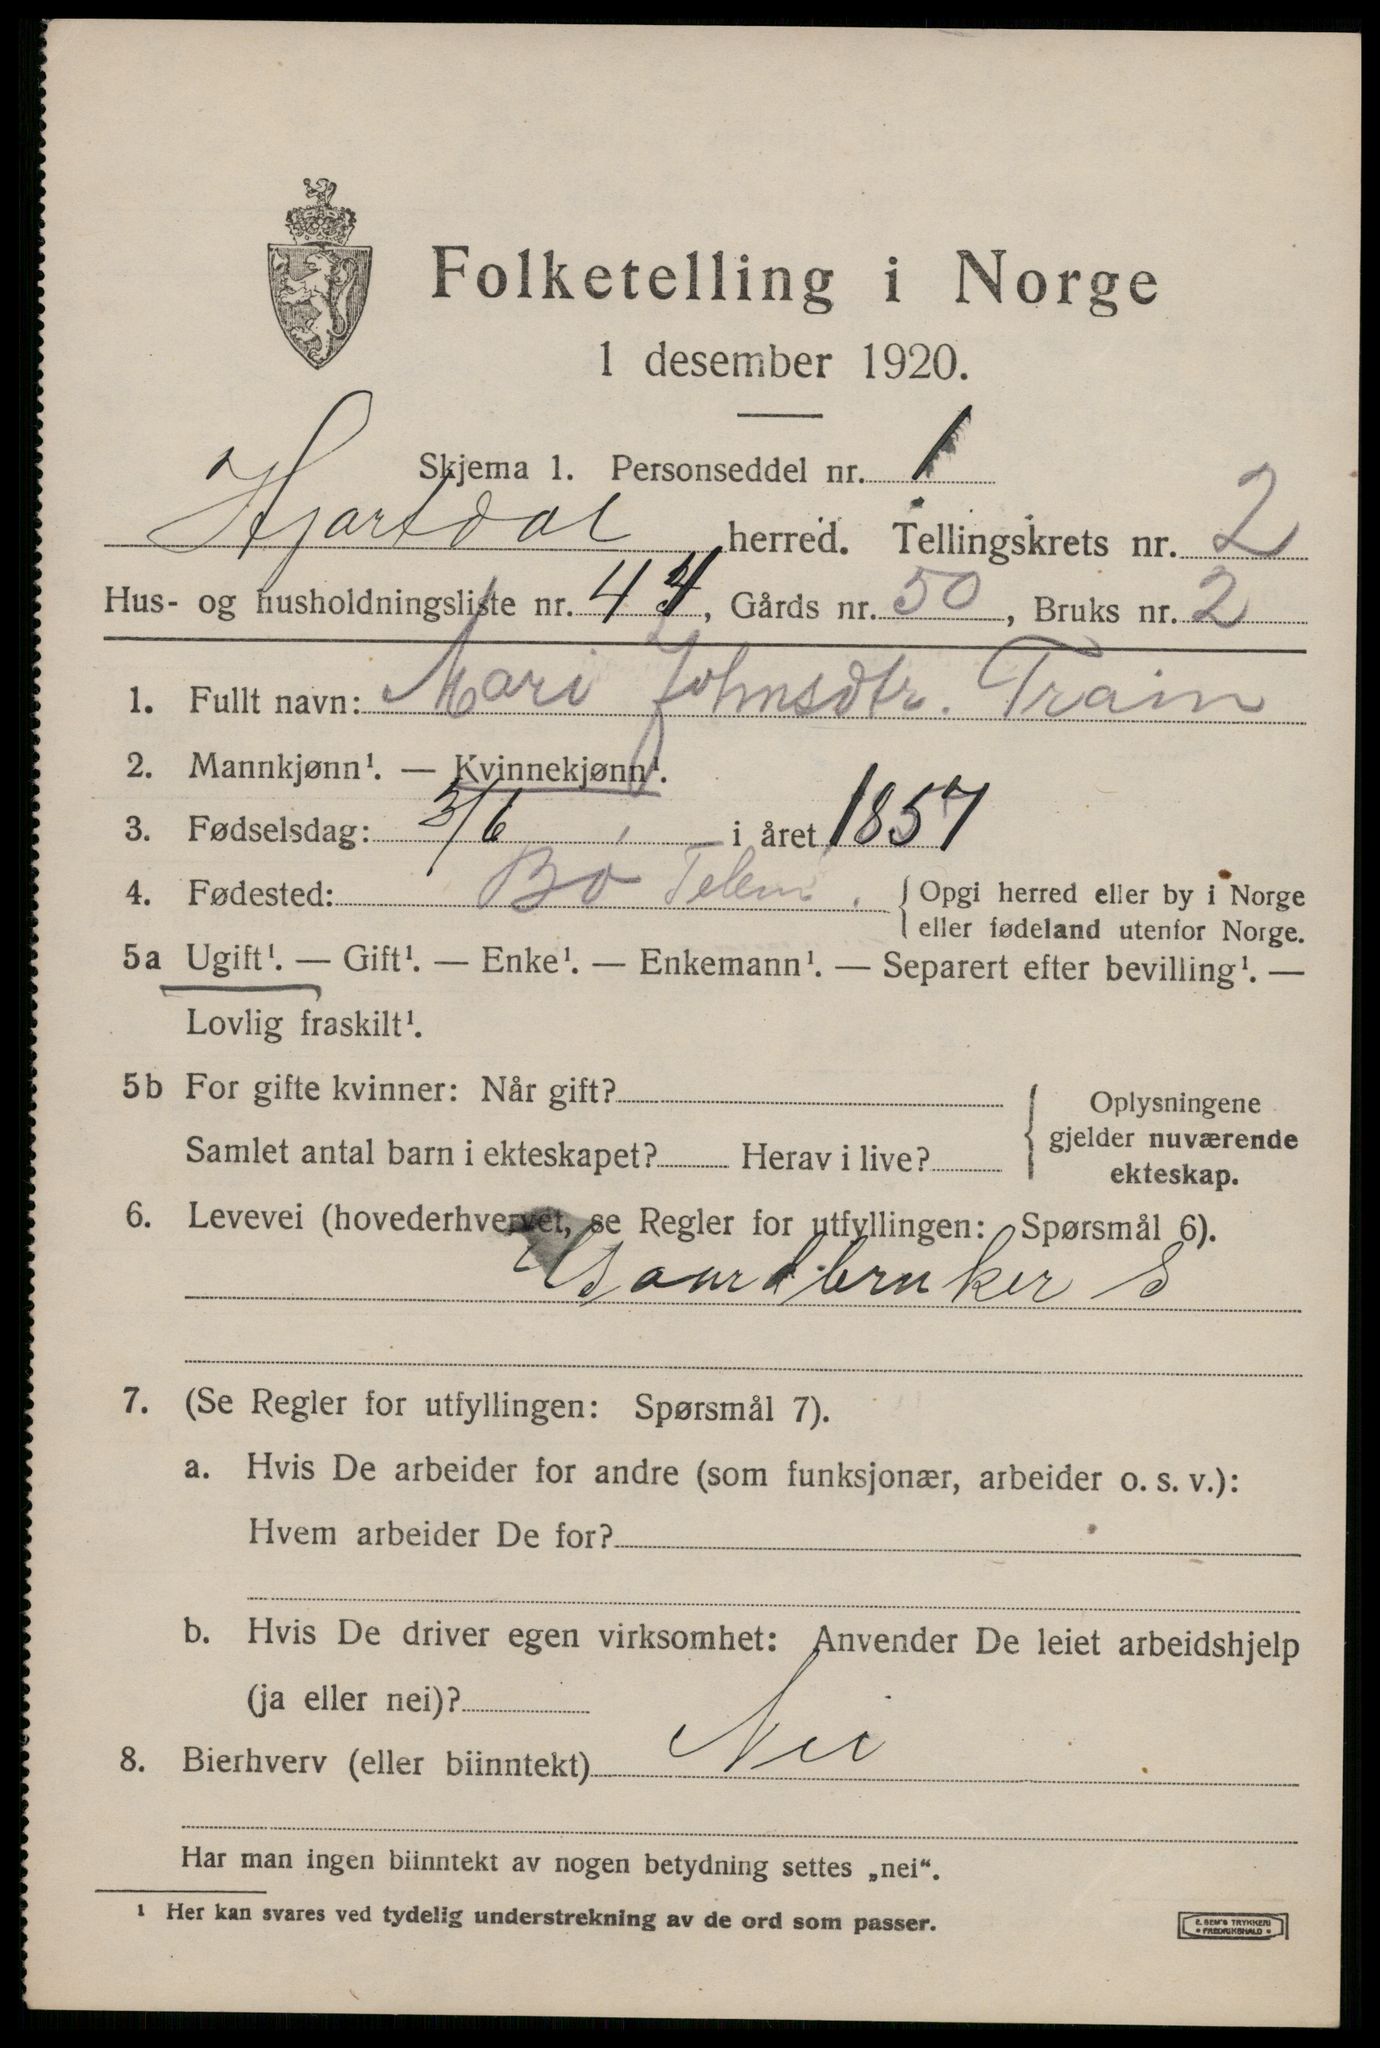 Folketelling i Norge
1 desember 1920.
Skjema 1. Personseddel nr. 1
Hjartdal herred. Tellingskrets nr. 2
Hus- og husholdningsliste nr. 44, Gårds nr. 50, Bruks nr. 2
1. Fullt navn: Mari Johnsdtr. Train
2. Mannkjønn¹. — Kvinnekjønn¹.
3. Fødselsdag: 3/6 i året 1857
4. Fødested: Bø Telem. { Opgi herred eller by i Norge
eller fødeland utenfor Norge.
5a Ugift¹. — Gift¹. — Enke¹. — Enkemann¹. — Separert efter bevilling¹. —
Lovlig fraskilt¹.
5b For gifte kvinner: Når gift?
Samlet antal barn i ekteskapet? Herav i live?
Oplysningene
gjelder nuværende
ekteskap.
6. Levevei (hovederhvervet, se Regler for utfyllingen: Spørsmål 6).
Gaardbruker S
7. (Se Regler for utfyllingen: Spørsmål 7).
a. Hvis De arbeider for andre (som funksjonær, arbeider o. s. v.):
Hvem arbeider De for?
b. Hvis De driver egen virksomhet: Anvender De leiet arbeidshjelp
(ja eller nei)?
8. Bierhverv (eller biinntekt) Nei
Har man ingen biinntekt av nogen betydning settes „nei“.
¹ Her kan svares ved tydelig understrekning av de ord som passer.
E. SEM'S TRYKKERI
FREDRIKSHALD